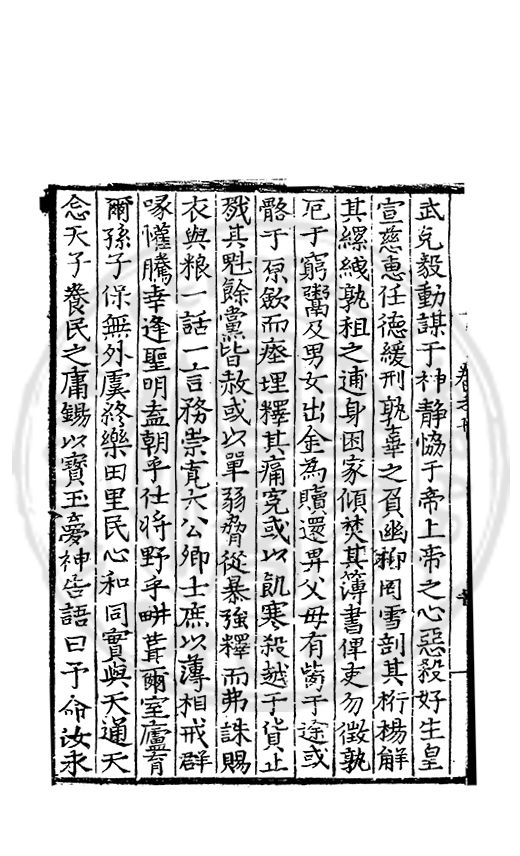 武允毅動謀于神静恊于帝上帝之心惡殺好生皇
宣慈惠任德緩刑孰辜之負幽枊罔雪剖其桁楊觧
其縲絏孰租之逋身困家傾焚其簿書俾吏勿徵孰
厄于窮鬻及男女出金為贖還畀父母有胔于途或
骼于原歛而瘞埋釋其痛寃或以飢寒殺越于貨止
戮其魁餘黨皆赦或以單弱脅從暴強釋而弗誅賜
衣與粮一話一言務崇寛大公卿士庶以薄相戒群
喙懽騰幸逢聖明盍朝乎仕將野乎畊葺爾室廬育
爾孫子保無外虞終樂田里民心和同實與天通天
念天子養民之庸錫以寳玉夢神告語曰予命汝永